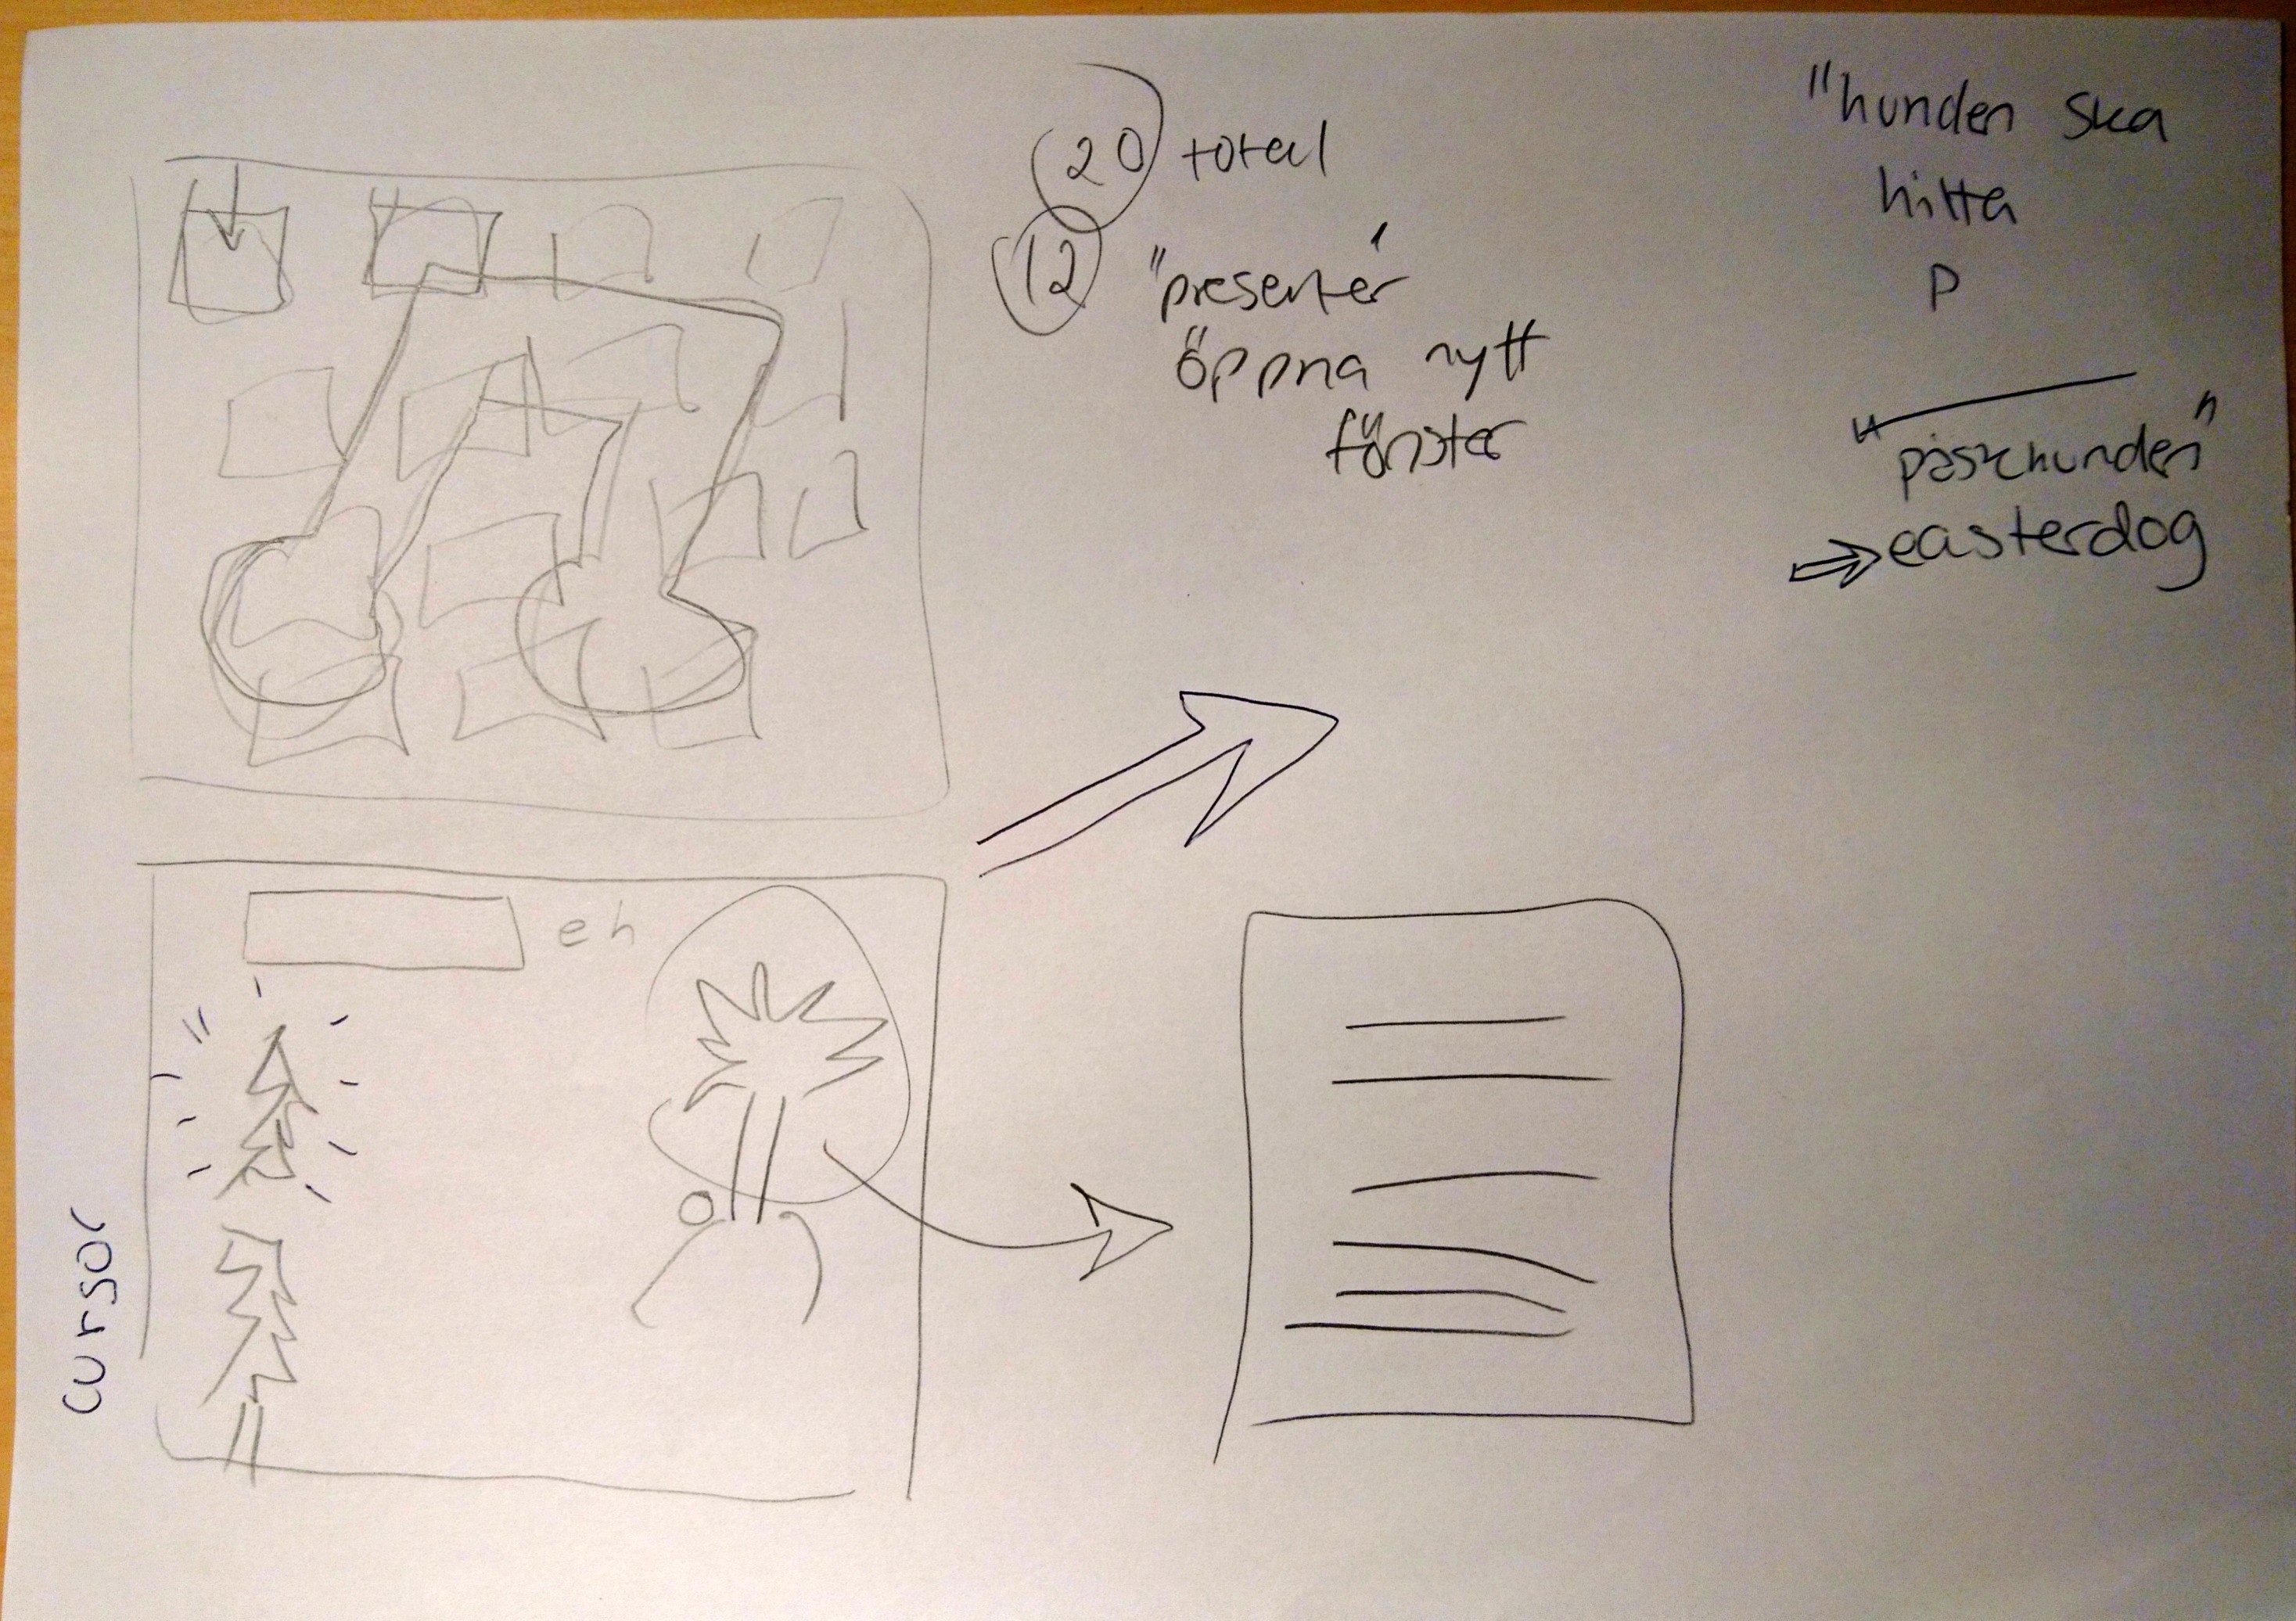 20 total
12 "presenter"
öppna nytt
fönster
"hunden ska
hitta
P
"påskhunden"
⇒ easterdog
eh
cursor